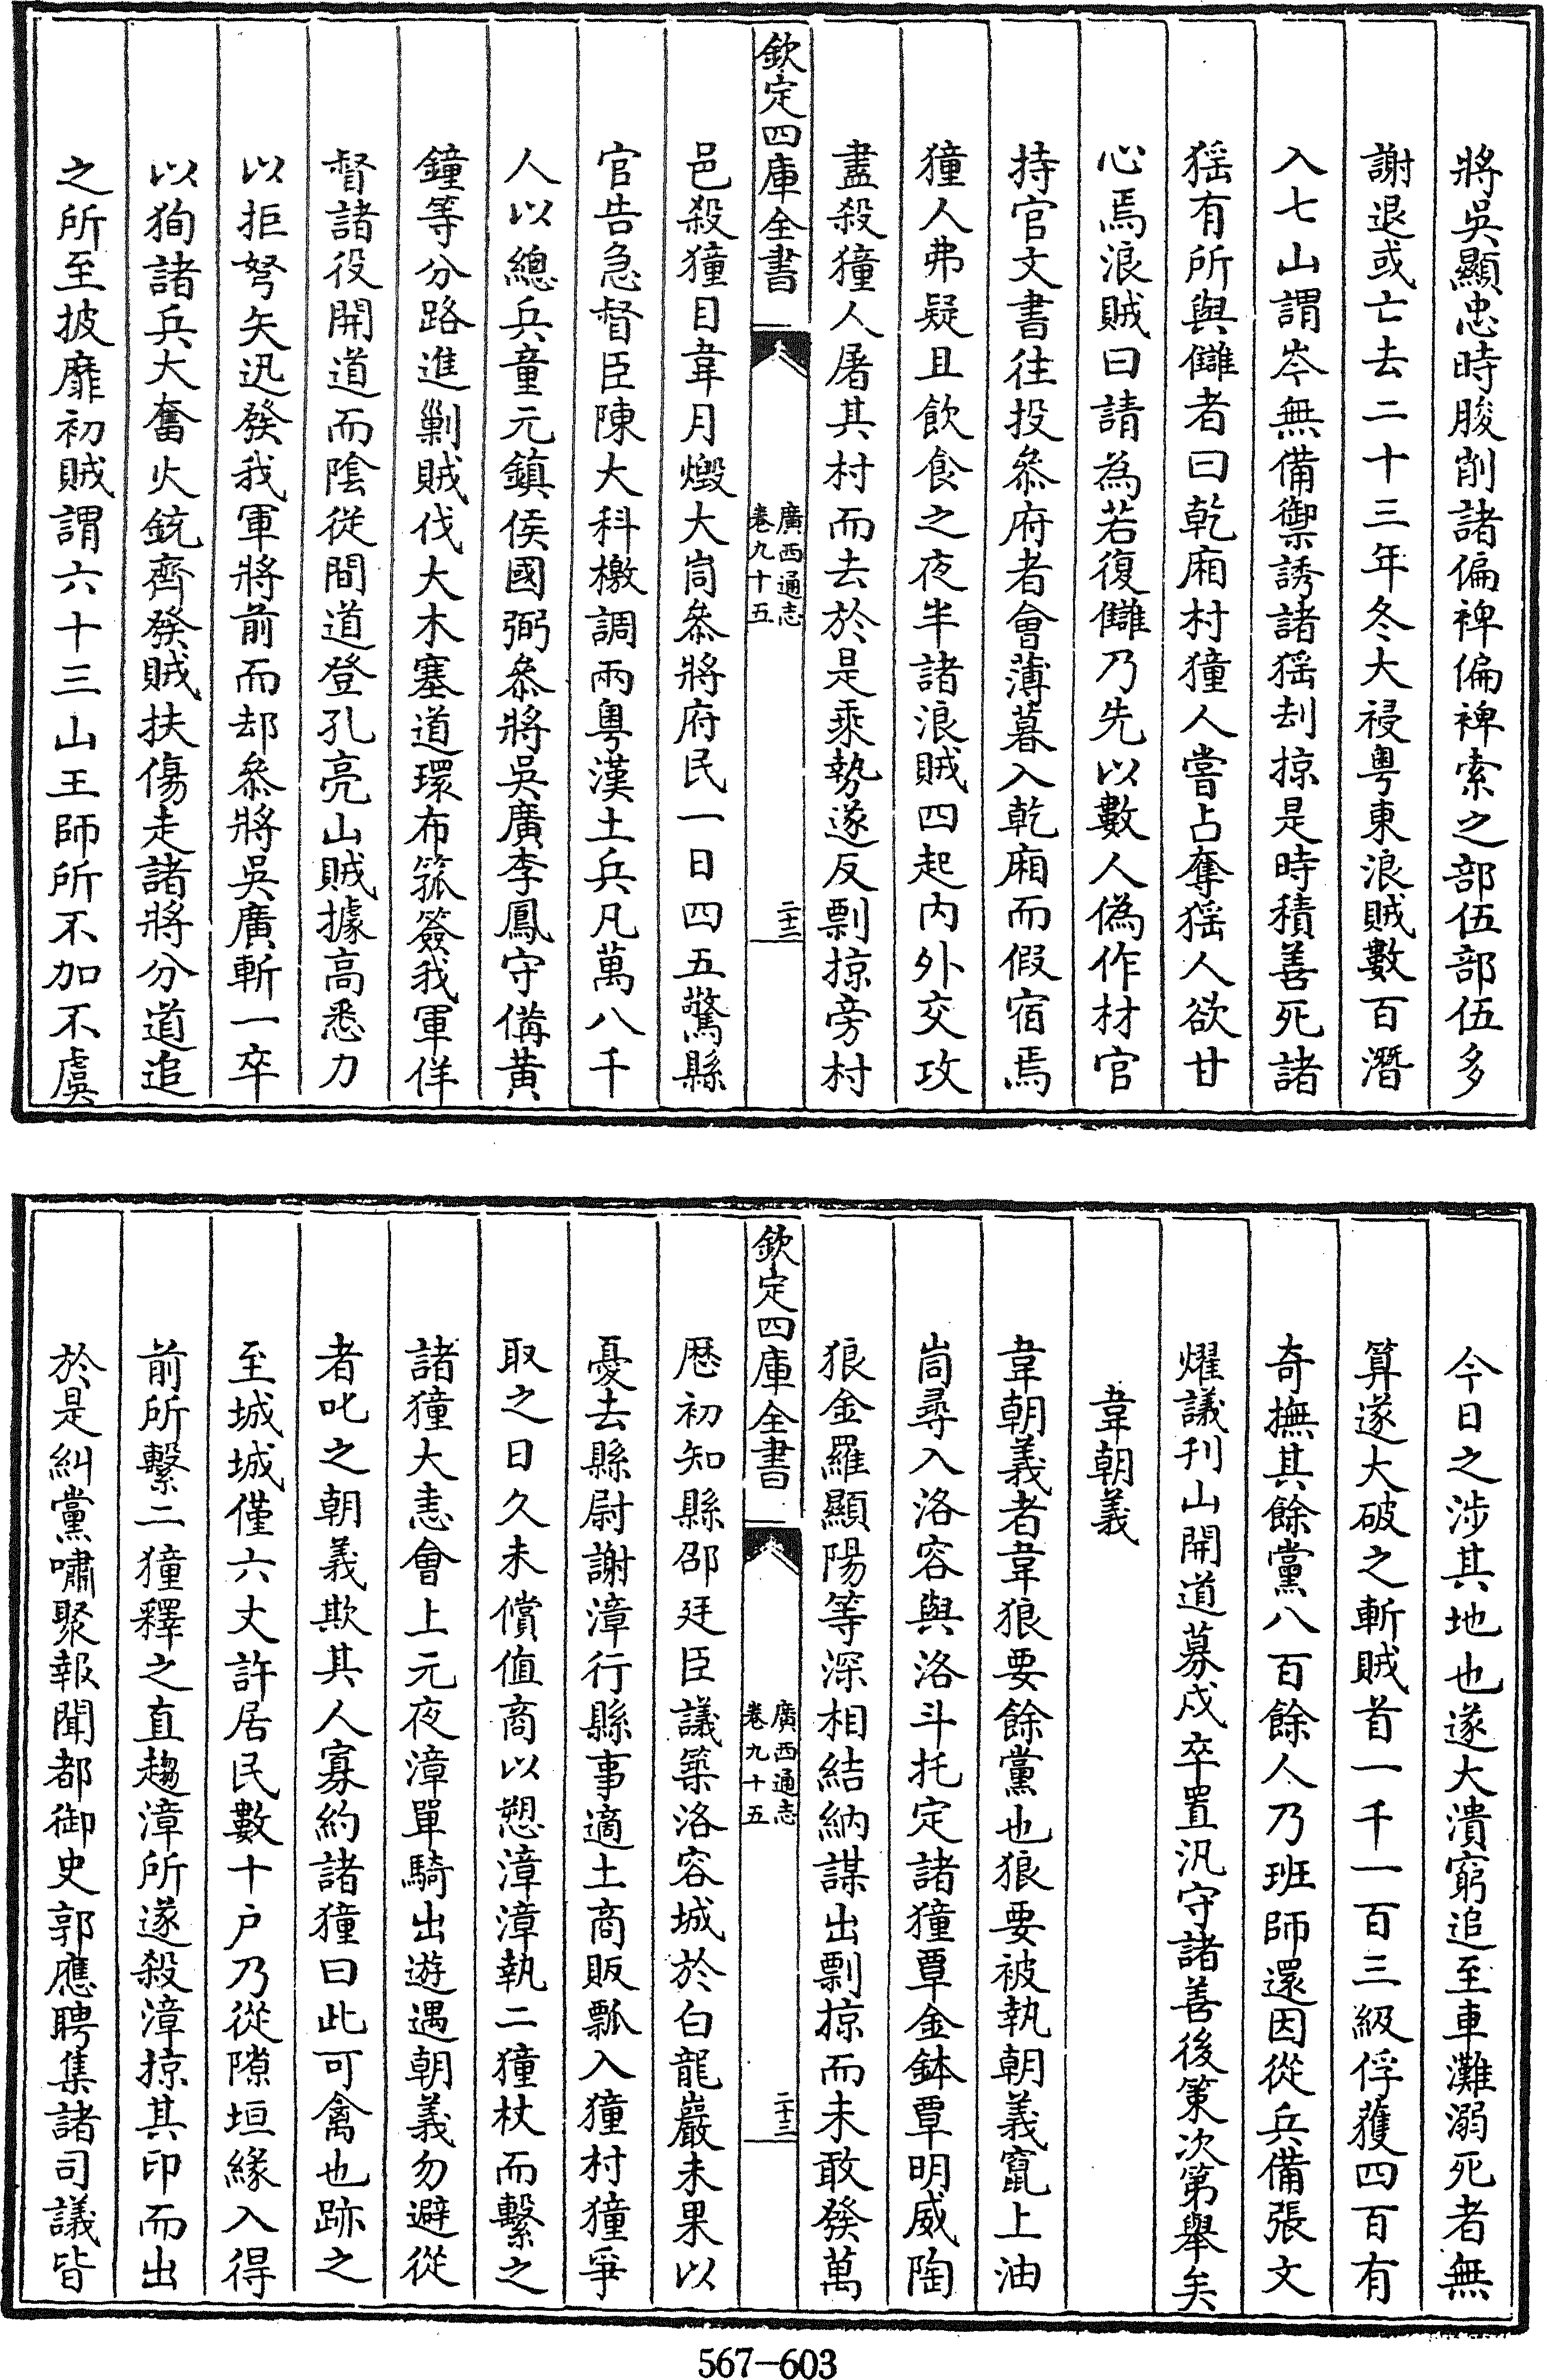 將吳顯忠時朘削諸偏裨偏裨索之部伍部伍多
謝退或亡去二十三年冬大祲粤東浪賊數百潛
入七山謂岑無備禦誘諸猺刦掠是時積善死諸
猺有所與讎者曰乾廂村獞人嘗占奪猺人欲甘
心焉浪賊曰請為若復讎乃先以數人偽作材官
持官文書往投叅府者會薄暮入乾廂而假宿焉
獞人弗疑且飲食之夜半諸浪賊四起内外交攻
盡殺獞人屠其村而去於是乘勢遂反剽掠旁村
欽定四庫全書
廣西通志
卷九十五
二十二
邑殺獞目韋月燬大峝叅將府民一日四五驚縣
官告急督臣陳大科檄調兩粤漢土兵凡萬八千
人以總兵童元鎮侯國弼叅將吳廣李鳳守備黄
鐘等分路進剿賊伐大木塞道環布箛簽我軍佯
督諸役開道而陰從間道登孔亮山賊據高悉力
以拒弩矢迅發我軍將前而却叅將吳廣斬一卒
以狥諸兵大奮火銃齊發賊扶傷走諸將分道追
之所至披靡初賊謂六十三山王師所不加不虞
今日之涉其地也遂大潰窮追至車灘溺死者無
算遂大破之斬賊首一千一百三級俘獲四百有
奇撫其餘黨八百餘人乃班師還因從兵備張文
燿議刋山開道募戍卒置汛守諸善後策次第舉矣
韋朝義
韋朝義者韋狼要餘黨也狼要被執朝義竄上油
峝尋入洛容與洛斗托定諸獞覃金鉢覃明威陶
狼金羅顯陽等深相結納謀出剽掠而未敢發萬
欽定四庫全書
廣西通志
卷九十五
二十三
厯初知縣邵廷臣議築洛容城於白龍巖未果以
憂去縣尉謝漳行縣事適土商販瓢入獞村獞爭
取之日久未償值商以愬漳漳執二獞杖而繫之
諸獞大恚會上元夜漳單騎出遊遇朝義勿避從
者叱之朝義欺其人寡約諸獞曰此可禽也跡之
至城城僅六丈許居民數十户乃從隙垣緣入得
前所繫二獞釋之直趨漳所遂殺漳掠其印而出
於是糾黨嘯聚報聞都御史郭應聘集諸司議皆
567—603